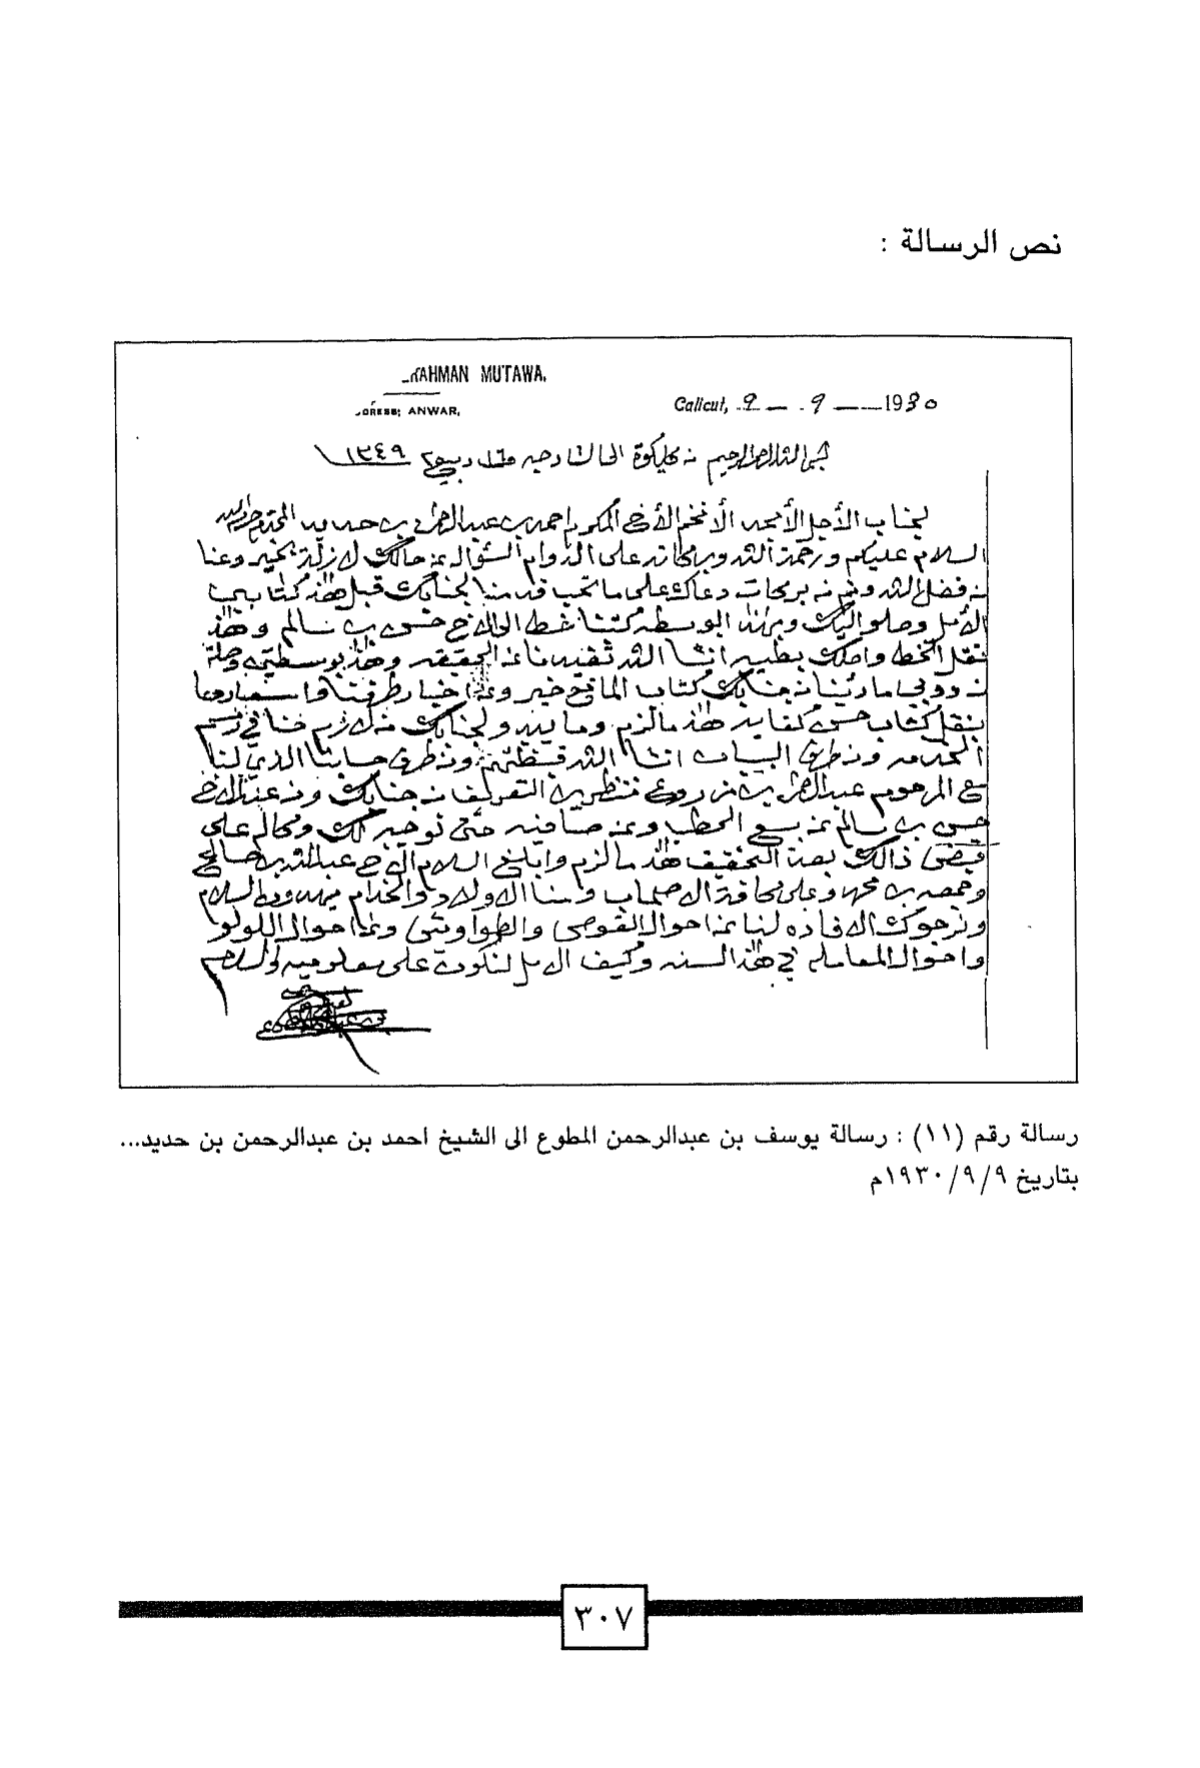 نص الرسالة :
RAHMAN MUTAWA.
DRESS; ANWAR,
Calicut, 9 — 9 — 1930
بسم الله الرحمن الرحيم من كليكوت الى الشارجه ربيع ٢ ١٣٤٩
لجناب الأجل الأمجد الأفخم الأخ المكرم احمد بن عبدالرحمن بن حديد المحترم
السلام عليكم ورحمة الله وبركاته على الدوام السؤال عن حالك لازلة بخير وعنا
من فضل الله ثم من بركات دعاك على ما تحب قدمنا لجنابك قبل هذا كتاب
الأمل وصلو اليك وبهذا البوسطه كتبنا خط الى الاخ حسن بن سالم وهذ
نقل الخط واصلك بطيه انشا الله تفيدنا عن الحقيقه وهذ بوسطتين وصلة
من دوبي ما رئينا من جنابك كتاب المانع خير وعن اخبار طرفنا
بنقل كتاب حسن كفايه هذ مالزم وما يبدو لجنابك من لازم
الخدامه ومن طرف انشا الله ومن طرف حسابنا الذي لنا
مع المرحوم عبدالرحمن بن منتظرين التعريف من جنابك ومن عند الاخ
حسن بن سالم عن بيع الحطب وعن صافيه متى توجبه لك ومحاله على
ذالك بعد التحقيق هذ مالزم وابلغ السلام الاخ عبدالله بن صالح
وجمعه بن محمد وعلى كافة الاصحاب ومنا الاولاد والخدام يهدون السلام
ونرجوك الافاده لنا عن احوال الغوص والطواويش وعن احوال اللولو
واحوال المعامله في هذ السنه وكيف الامل لنكون على معلوميه والسلام
رسالة رقم (١١) : رسالة يوسف بن عبدالرحمن المطوع الى الشيخ احمد بن عبدالرحمن بن حديد...
بتاريخ ١٩٣٠/٩/٩م
٣٠٧